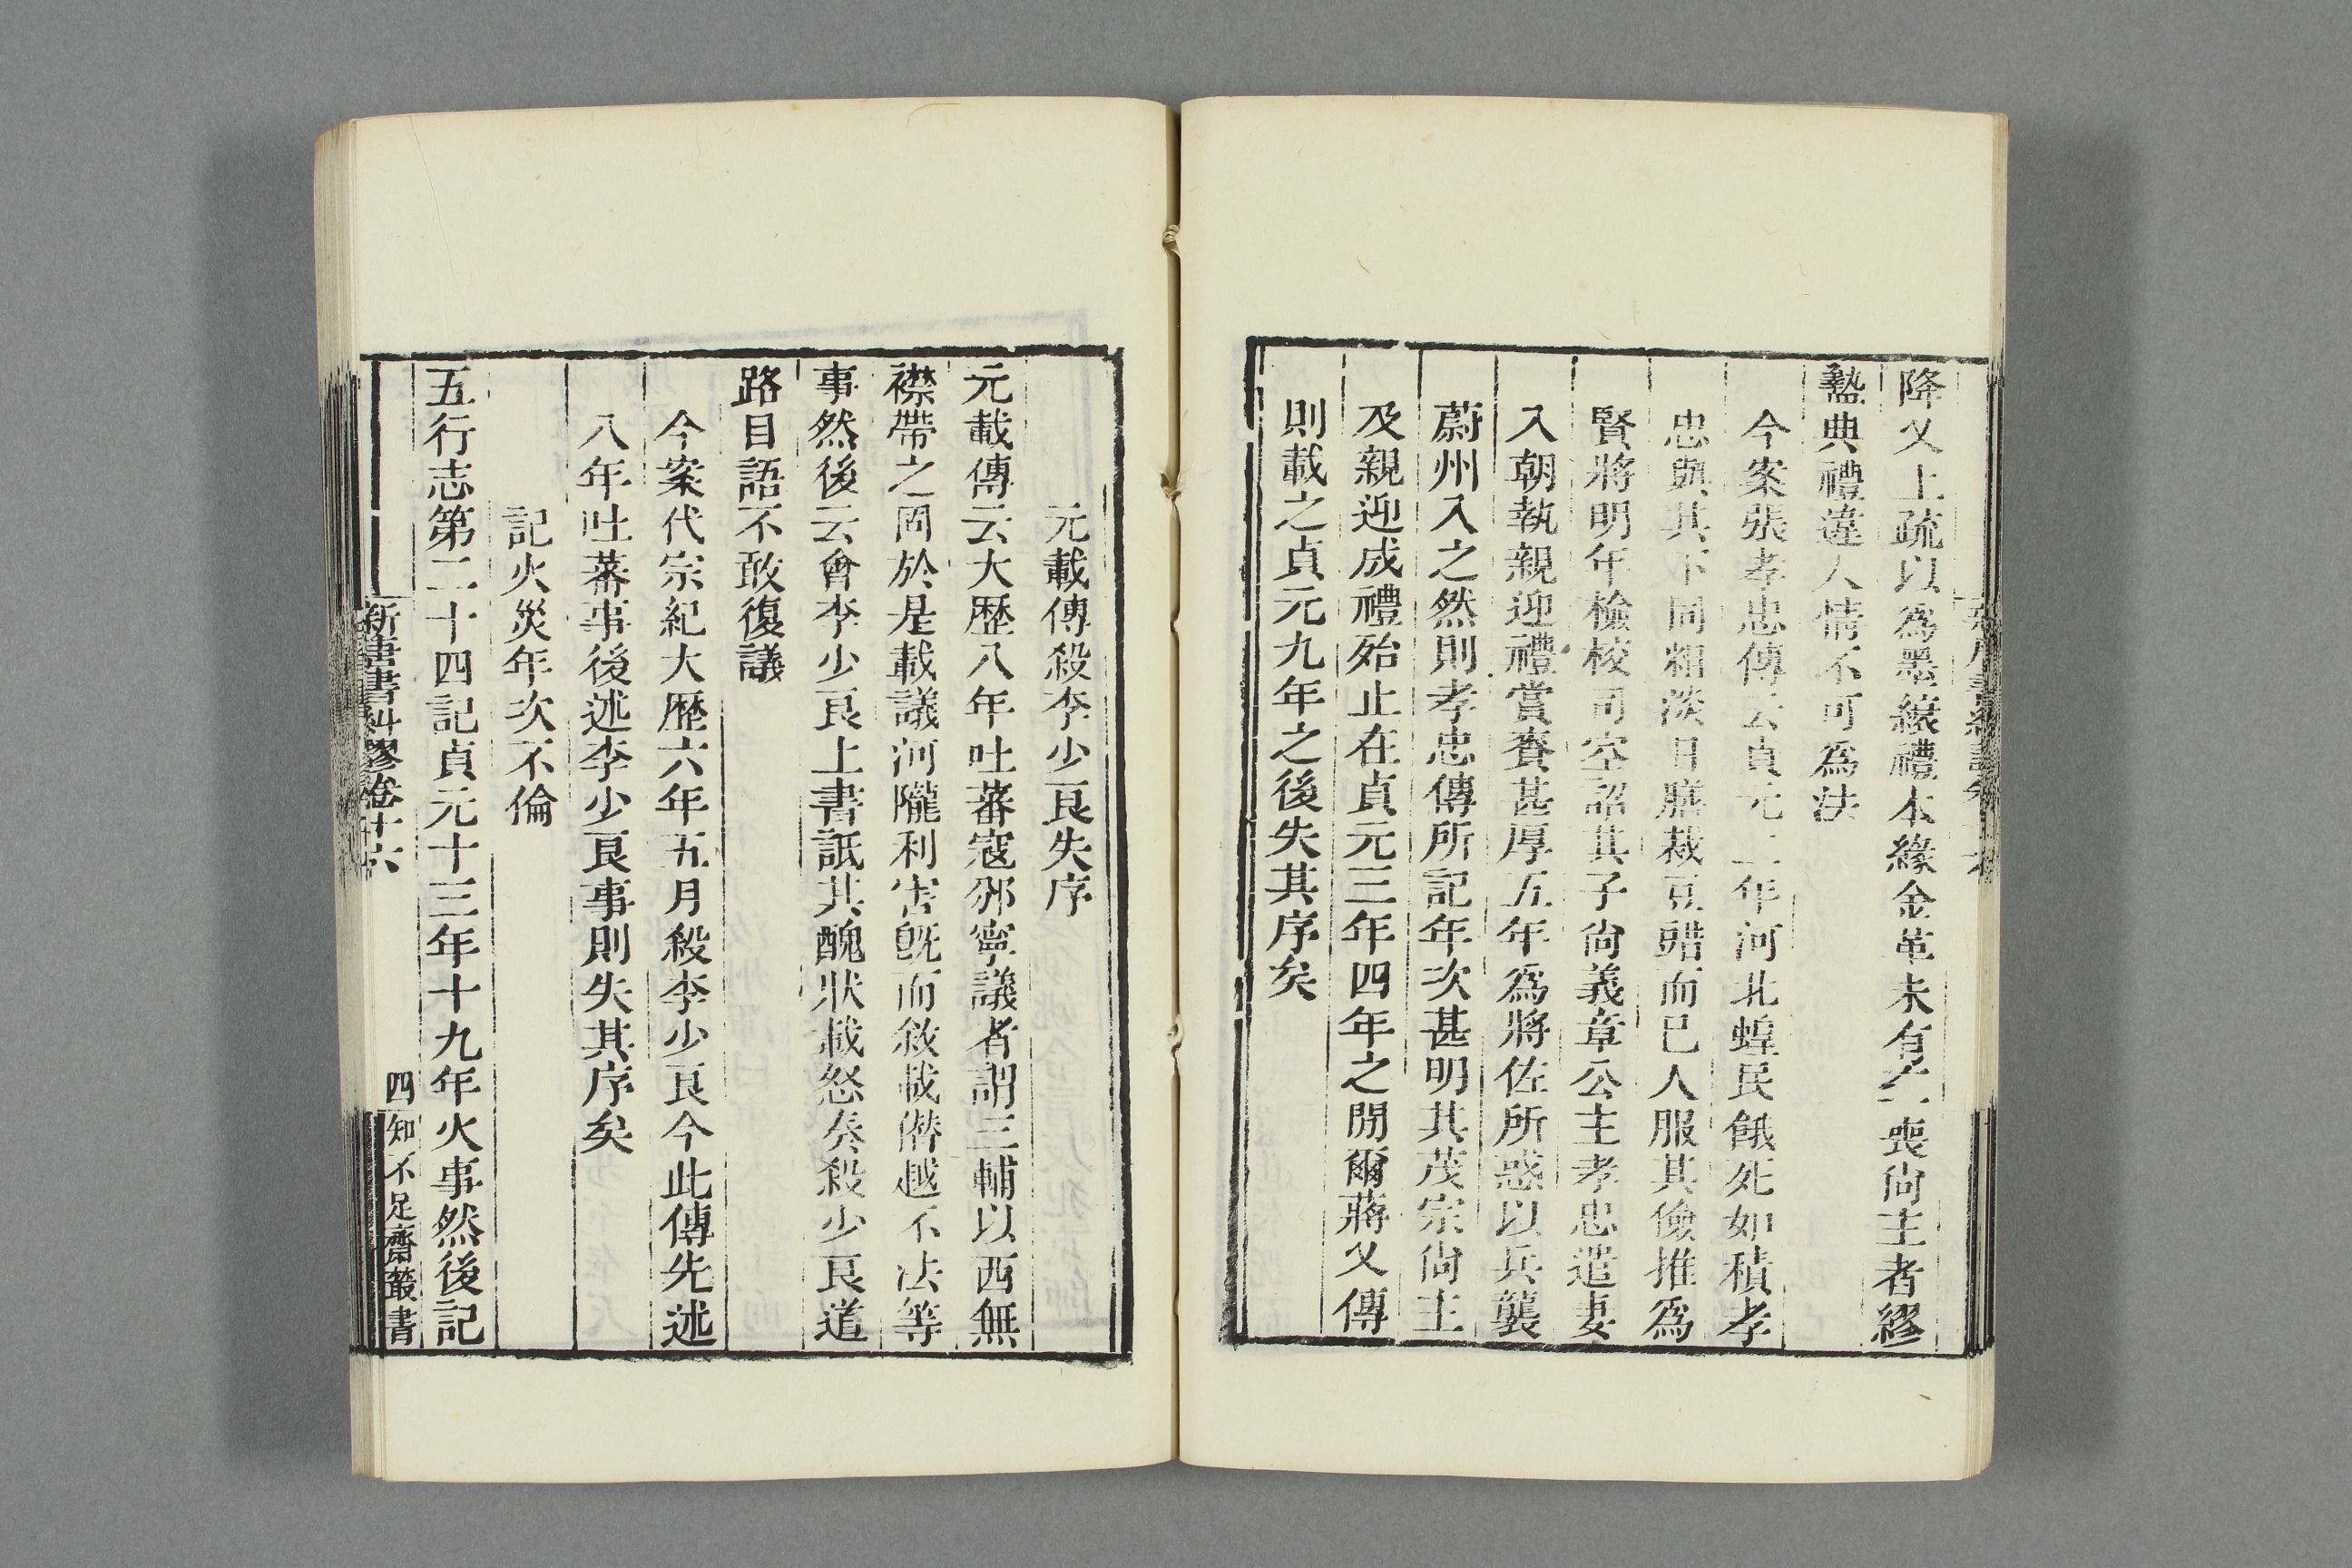 降乂上疏以爲墨縗禮本緣金革未有奪喪尚主者繆
盭典禮違人情不可爲法
今案張孝忠傳云貞元二年河北蝗民餓死如積孝
忠與其下同粗淡日膳裁豆䜺而已人服其儉推爲
賢將明年檢校司空詔其子尙義章公主孝忠遣妻
入朝執親迎禮賞賚甚厚五年爲將佐所惑以兵襲
蔚州入之然則孝忠傳所記年次甚明其茂宗尙主
及親迎成禮殆止在貞元三年四年之閒爾蔣乂傳
則載之貞元九年之後失其序矣
元載傳殺李少良失序
元載傳云大歷八年吐蕃寇邠寧議者謂三輔以西無
襟帶之固於是載議河隴利害旣而敘載僭越不法等
事然後云會李少良上書詆其醜狀載怒奏殺少良道
路目語不敢復議
今案代宗紀大歷六年五月殺李少良今此傳先述
八年吐蕃事後述李少良事則失其序矣
記火災年次不倫
五行志第二十四記貞元十三年十九年火事然後記
新唐書糾謬卷十六
四
知不足齋叢書